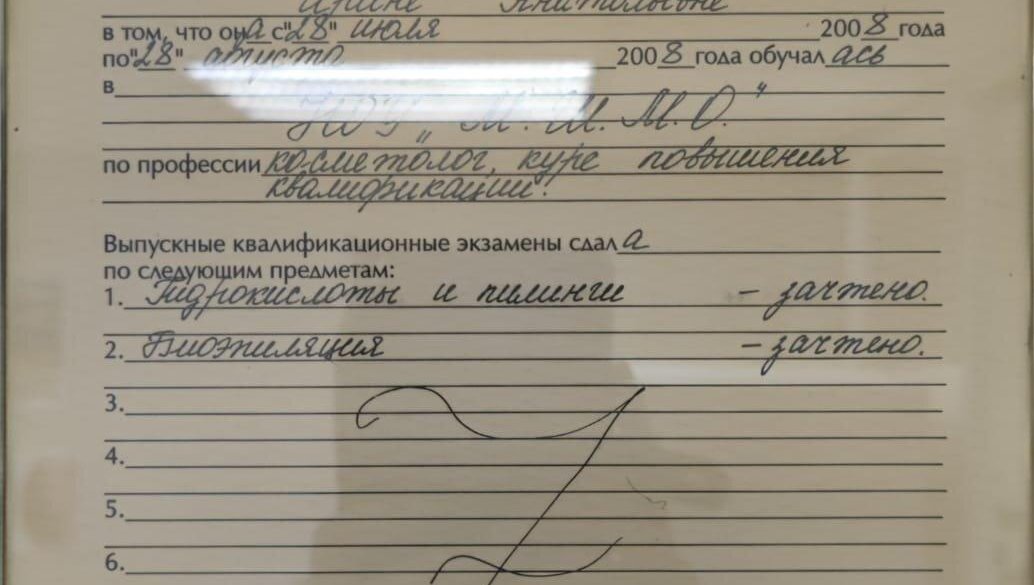 Ирине Анатольевне
в том, что она с "28" июля 2008 года
по "28" августа 2008 года обучалась
в
НОУ „М.Ш.М.О."
по профессии косметолог, курс повышения
квалификации.
Выпускные квалификационные экзамены сдала
по следующим предметам:
1. Гидрокислоты и пилинги – зачтено.
2. Биоэпиляция – зачтено.
3.
4.
5.
6.